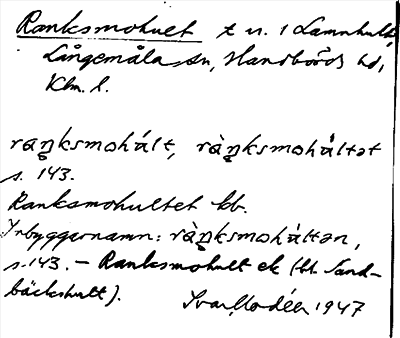 Ranksmohult t u. 1 Lamnhult,
Långemåla sn, Handbörds hd,
Klm. l.
raŋksmohált, ràŋksmohåltət
s. 143.
Ranksmohultet bb.
Inbyggarnamn: ràŋksmohåltən,
s. 143. – Ranksmohult ek (bl. Sand-
bäckshult).
Ivar Modéer 1947